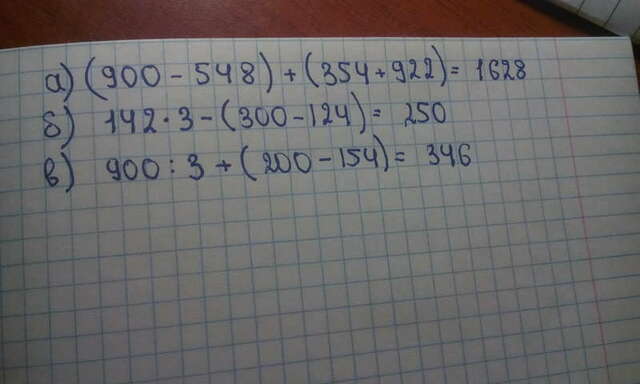 а) (900 - 548) + (354 + 922) = 1628
б) 142 · 3 - (300 - 124) = 250
в) 900 : 3 + (200 - 154) = 346